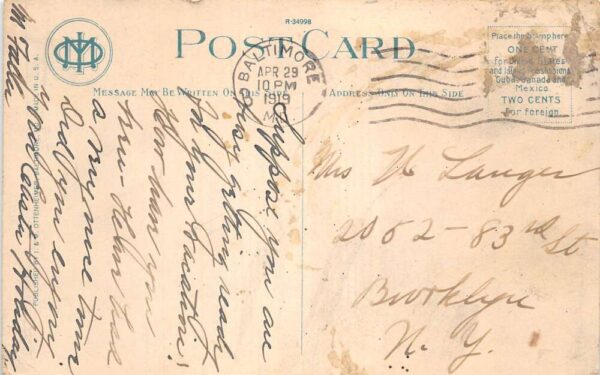 R-34998
POST CARD
BALTIMORE
APR 29
10 PM
1919
MD.
Place the Stamp here
ONE CENT
for United States
and Island Possessions
Cuba, Canada and
Mexico
TWO CENTS
for Foreign.
MESSAGE MAY BE WRITTEN ON THIS SIDE
ADDRESS ONLY ON THIS SIDE
Suppose you are
busy getting ready
for your vacation!
How have you
been - Helen had
a very nice time.
Did you enjoy
your Easter Holiday
Mrs H Langer
2052 - 83rd St
Brooklyn
N. Y.
PUBLISHED BY I. & M. OTTENHEIMER, BALTIMORE, MD.
MADE IN U. S. A.